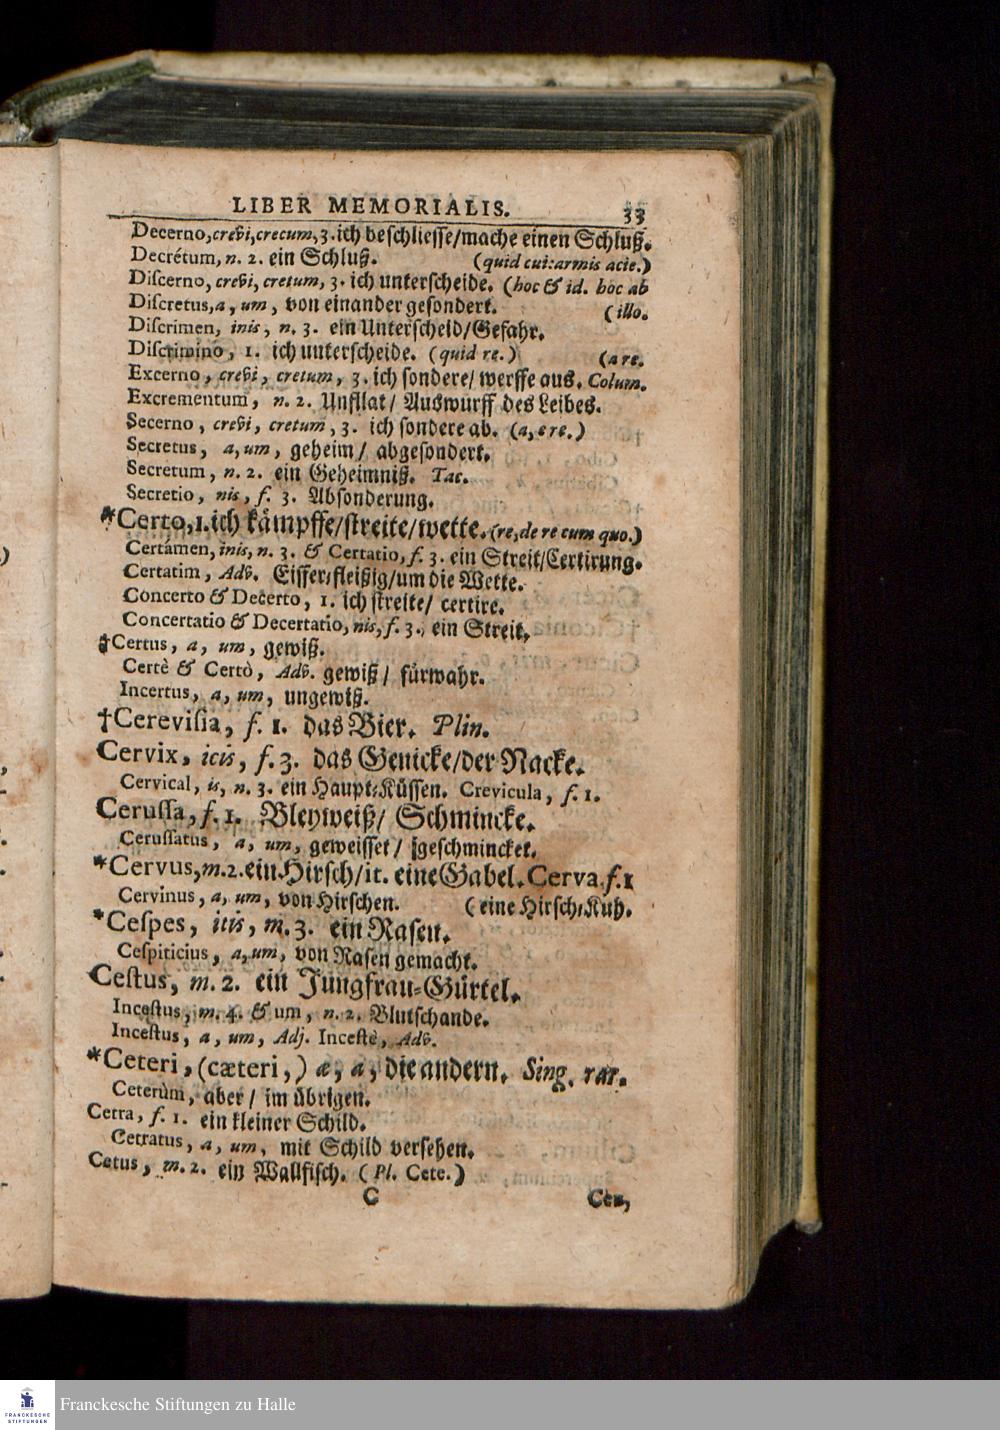 LIBER MEMORIALIS. 33
Decerno, crevi, crecum, 3. ich beschliesse/mache einen Schluß.
Decrétum, n. 2. ein Schluß. (quid cui: armis acie.)
Discerno, crevi, cretum, 3. ich unterscheide. (hoc & id. hoc ab
Discretus, a, um, von einander gesondert. (illo.
Discrimen, inis, n. 3. ein Unterscheid/Gefahr.
Discrimino, 1. ich unterscheide. (quid re.) (a re.
Excerno, crevi, cretum, 3. ich sondere/ werffe aus. Colum.
Excrementum, n. 2. Unflat/ Auswurff des Leibes.
Secerno, crevi, cretum, 3. ich sondere ab. (a, e re.)
Secretus, a, um, geheim/ abgesondert.
Secretum, n. 2. ein Geheimniß. Tac.
Secretio, nis, f. 3. Absonderung.
*Certo, 1. ich kämpffe/streite/wette. (re, de re cum quo.)
Certamen, inis, n. 3. & Certatio, f. 3. ein Streit/Certirung.
Certatim, Adv. Eiffer-fleißig/um die Wette.
Concerto & Decerto, 1. ich streite/ certire.
Concertatio & Decertatio, nis, f. 3., ein Streit.
†Certus, a, um, gewiß.
Certè & Certò, Adv. gewiß/ fürwahr.
Incertus, a, um, ungewiß.
†Cerevisia, f. 1. das Bier. Plin.
Cervix, icis, f. 3. das Genicke/der Nacke.
Cervical, is, n. 3. ein Haupt-Küssen. Crevicula, f. 1.
Cerussa, f. 1. Bleyweiß/ Schmincke.
Cerussatus, a, um, geweisset/ geschmincket.
*Cervus, m. 2. ein Hirsch/it. eine Gabel. Cerva f. 1
Cervinus, a, um, von Hirschen. (eine Hirsch-Kuh.
*Cespes, itis, m. 3. ein Rasen.
Cespiticius, a, um, von Rasen gemacht.
Cestus, m. 2. ein Jungfrau-Gürtel.
Incestus, m. 4. & um, n. 2. Blutschande.
Incestus, a, um, Adj. Incestè, Adv.
*Ceteri, (cæteri,) æ, a, die andern. Sing. rar.
Ceterùm, aber/ im übrigen.
Cetra, f. 1. ein kleiner Schild.
Cetratus, a, um, mit Schild versehen.
Cetus, m. 2. ein Wallfisch. (Pl. Cete.)
C Ceu,
FRANCKESCHE STIFTUNGEN
Franckesche Stiftungen zu Halle